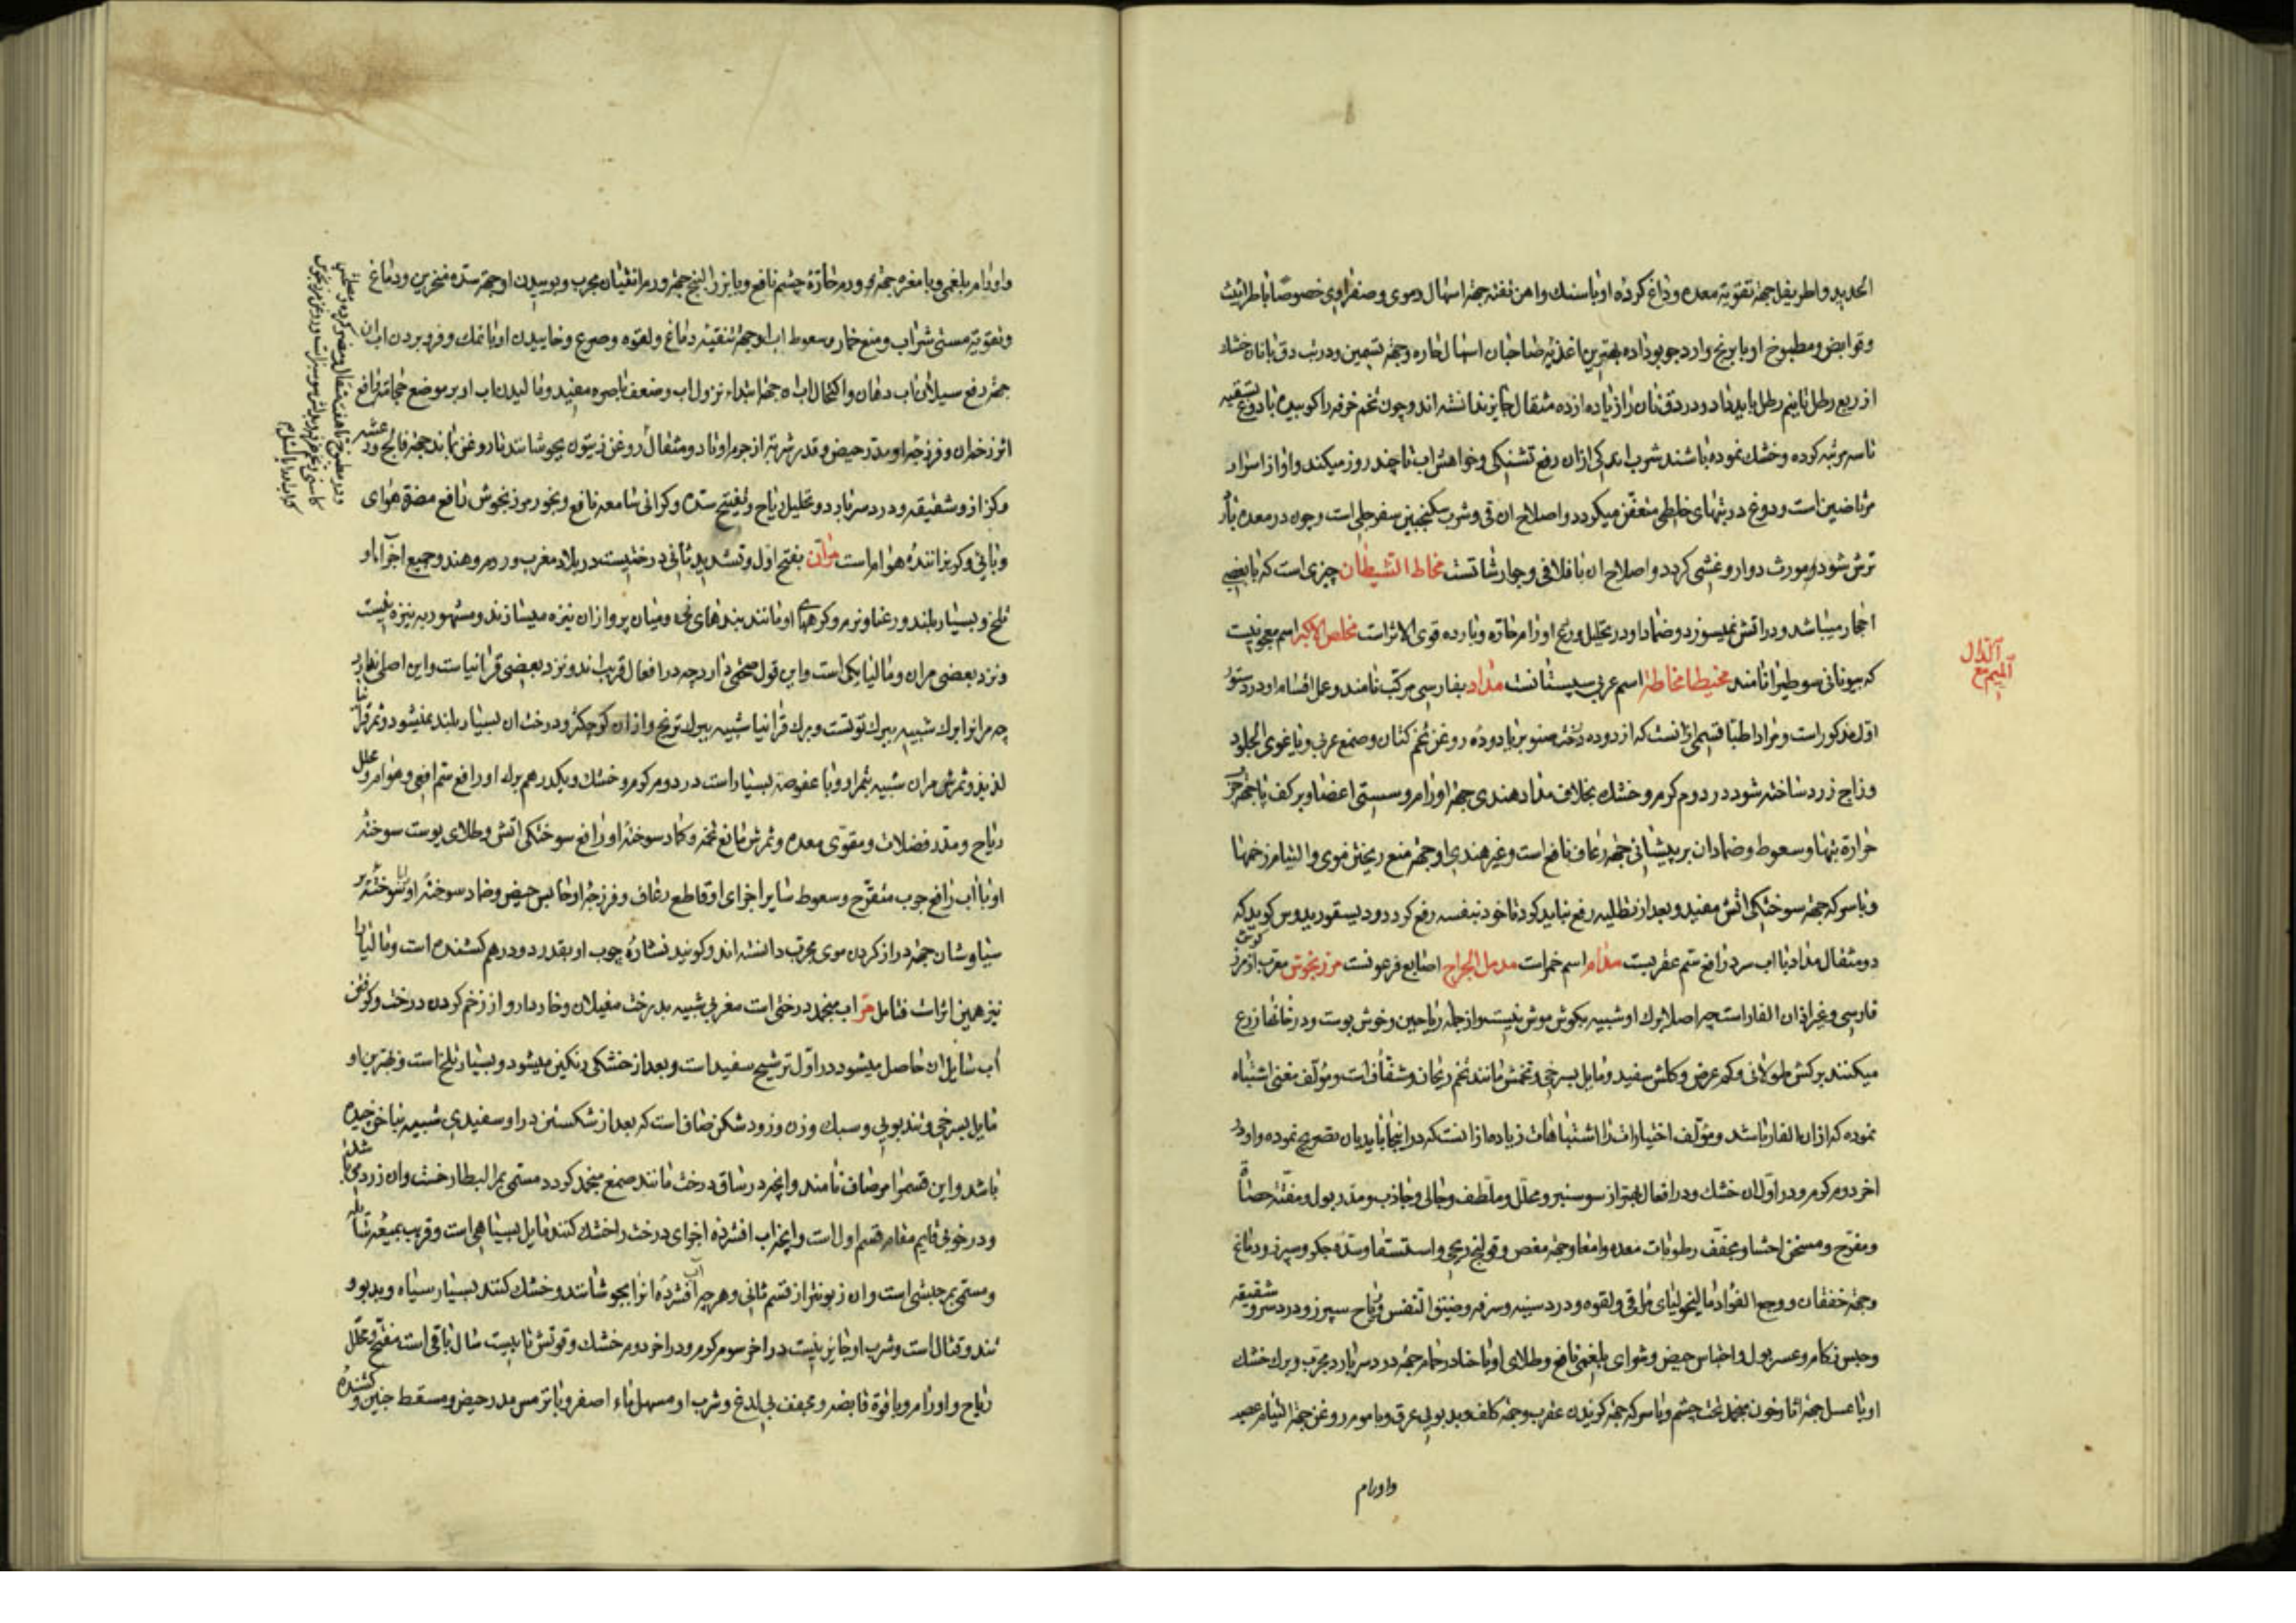 الحدید و اطریفل جهة تقویة معده و داغ کرده او با سنك و اهن تفته جهة اسهال دموی و صفراوی خصوصا با طراثیث
و قوابض و مطبوخ او با برنج و ارد جو بو داده بهترین اغذیه صاحبان اسهال حاره و جهة تسمین و در تب دق با نان خشك
از ربع رطل تا نیم رطل باید داد و در دق نان را زیاده از ده مثقال جایز ندانسته اند و چون تخم خرفه را کوبیده با دوغ تسقیه
تا سه مرتبه کرده و خشك نموده باشند شرب اندکی ازان رفع تشنکی و خواهش اب تا چند روز میکند و او از اسرار
مرتاضین است و دوغ در تبهای خلطی متعفن میکردد و اصلاح ان قی و شرب سکنجبین سفرجلی است و چون در معده
ترش شود و مورث دوار و غشی کردد و اصلاح ان با فلافلی و جوارشاتست مخاط الشیطان چیزی است که با بعضی
احجار میباشد و در اتش نمیسوزد و ضماد او در تحلیل و ردع اورام حاره و بارده قوی الاثر است مخلص الاکبر اسم معجونیست
که بیونانی سوطیرا نامند مخیطا مخاطة اسم عربی سپستانست مداد بفارسی مرکب نامند و عمل اقسام او در دستور
اول مذکور است و مراد اطبا قسمی ازانست که از دوده دخنه صنوبر با دوده روغن تخم کتان و صمغ عربی و یا غری الجلود
و زاج زرد ساخته شود در دوم کرم و خشك بخلاف مداد هندی جهة اورام و سستی اعضا و بر کف پا جهة
حرارة تبها و سعوط و ضماد ان بر پیشانی جهة رعاف نافع است و غیر هندی او جهة منع ریختن موی و التیام زخمها
و با سرکه جهة سوختکی اتش مفید و بعد از تطلیه رفع نباید کرد تا خود بنفسه رفع کردد و دیسقوریدوس کوید که
دو مثقال مداد با اب سرد رافع سم عقربست مدام اسم خمر است مدمل الجراح اصابع فرعونست مرزنجوش معرب از مرزن کوش
فارسی و غیر اذان الفار است چه اصلا برك او شبیه بکوش موش نیست و از جمله ریاحین و خوش بوست و در خانها زرع
میکنند برکش طولانی و کم عرض و کلش سفید و مایل بسرخی و تخمش مانند تخم ریحان و شفاف است و مؤلف مغنی اشتباه
نموده که اذان الفار باشد و مؤلف اختیارات را اشتباهات زیاده ازانست که در اینجا بایدبان تصریح نموده و او در
اخر دوم کرم و در اول ان خشك و در افعال بهتر از سوسنبر و محلل و ملطف و جالی و جاذب و مدر بول و مفتت حصاة
و مفرح و مسخن احشا و مجفف رطوبات معده و امعا و جهة مغص و قولنج ریحی و استسقا و سده جکر و سپرز و دماغ
و جهة خفقان و وجع الفؤاد مالیخولیای مراقی و لقوه و درد سینه و سرفه و ضیق النفس و ریاح سپرز و درد سر و شقیقه
و حبس زکام و عسر بول و احتباس حیض و شوای بلغمی نافع و طلای او با حنا در حمام جهة درد سر بارد مجرب و برك خشك
او با عسل جهة اثار خون منجمد تحت چشم و با سرکه جهة کزیدن عقرب و جهة کلف و بدبویی عرق و با موم روغن جهة التیام عصب
و اورام
الدال
المیم مع
و اورام بلغمی و با مغره جهة ورم حارة چشم نافع و با بزر البنج جهة ورم انثیان مجرب و بوییدن او جهة سده منخرین و دماغ
و تقویة مستی شراب و منع خمار و سعوط اب او جهة تنقیه دماغ و لقوه و صرع و خاییدن او با نمك و فرو بردن اب ان
جهة رفع سیلان اب دهان و اکتحال اب ان جهة ابتداء نزول اب و ضعف باصره مفید و مالیدن اب او بر موضع حجامة رافع
اثر زخم ان و فرزجه او مدر حیض و قدر شربتش از جرم او تا دو مثقال روغن زیتون بجوشانند تا روغن بماند جهة فالج و رعشه
و کزاز و شقیقه و درد سر بارد و تحلیل ریاح و تفتیح سده و کرانی سامعه نافع و بخور مرزنجوش دافع مضرة هوای
وبائی و کریزاننده هوام است مران بفتح اول و تشدید ثانی درختیست در بلاد مغرب و روم و هند و جمیع اجزاء او
تلخ و بسیار بلند و رعنا و نرم و کرههای او مانند بندهای نی و میان پر و ازان نیزه میسازند و مشهور به نیزه نیست
و نزد بعضی مران و مالیا یکی است و این قول صحتی دارد چه در افعال قریب اند و نزد بعضی قرانیاست و این اصلی ندارد
چه مرانرا برك شبیه ببرك توتست و برك قرانیا شبیه ببرك ترنج و ازان کوچکتر و درخت ان بسیار بلند نمیشود و ثمر قرانیا
لذیذ و ثمرش مران شبیه بثمر او و با عفوصة بسیار است در دوم کرم و خشك و یکدرهم برك او رافع سم افعی و هوام و محلل
ریاح و مدر فضلات و مقوی معده و ثمرش مانع تخمه و کماد سوخته او رافع سوختکی اتش و طلای پوست سوخته
او با اب رافع جرب متقرح و سعوط سایر اجزای او قاطع رعاف و فرزجه او حابس حیض و ضماد سوخته او با سوخته پر
سیاوشان جهة دراز کردن موی مجرب دانسته اند و کویند نشاره چوب او بقدر دو درهم کشنده است و مالیا را
نیز همین اثر است فتامل مر اب منجمد درختی است مغربی شبیه بدرخت مغیلان و خاردار و از زخم کردن درخت و کوفتن
اب سایل ان حاصل میشود در اول ترشیح سفید است و بعد از خشکی رنکین میشود و بسیار تلخ است و بهترین او
مایل بسرخی و تند بویی و سبك وزن و زود شکن صاف است که بعد از شکستن در او سفیدی شبیه بناخن چیده
باشد و این قسمرا مر صاف نامند و انچه در ساق درخت مانند صمغ منجمد کردد مسمی بمر البطارخست و ان زردی مایل
و در خوبی قایم مقام قسم اول است و انچه از اب افشرده اجزای درخت را خشك کنند مایل بسیاهی است و قریب بمیعه سایله
و مسمی بمر حبشی است و ان زبونتر از قسم ثانی و هر چه اب افشرده انرا بجوشانند و خشك کنند بسیار سیاه و بدبو و
تند و قتال است و شرب او جایز نیست در اخر سوم کرم و در اخر دوم خشك و قوتش تا بیست سال باقی است مفتح و محلل
ریاح و اورام و با قوة قابضه و مجفف بی لدغ و شرب او مسهل ماء اصفر و با ترمس مدر حیض و مسقط جنین و کشنده